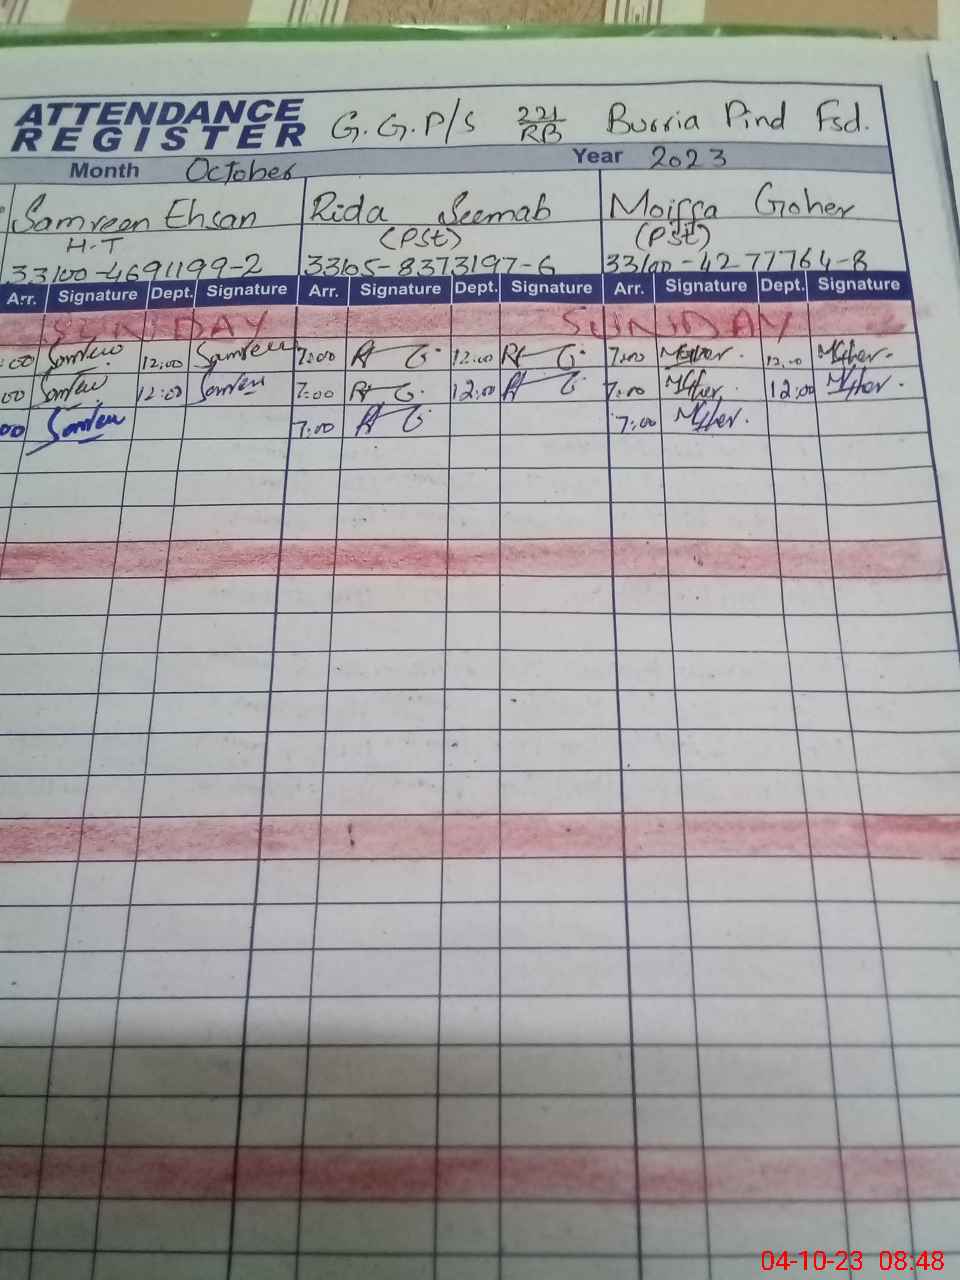 ATTENDANCE
REGISTER
G.G.P/S 221/RB Burria Pind Fsd.
Month October Year 2023
Samreen Ehsan Rida Seemab Moiffa Goher
H-T (PSt) (PSt)
33100-4691199-2 33105-8373197-6 33100-4277764-8
Arr. Signature Dept. Signature Arr. Signature Dept. Signature Arr. Signature Dept. Signature
SUNDAY SUNDAY
:00 Samreen 12:00 Samreen 7:00 R G. 12:00 R G. 7:00 12:00
00 Samreen 12:00 Samreen 7:00 R G. 12:00 R G. 7:00 12:00
00 Samreen 7:00 R G. 7:00
04-10-23 08:48